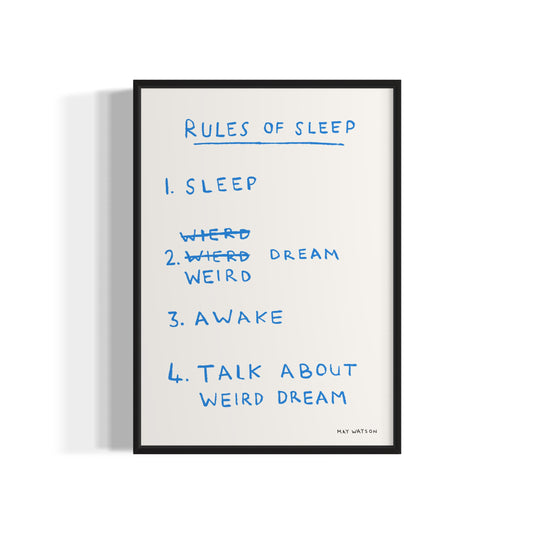 RULES OF SLEEP
1. SLEEP
WIERD
2. WIERD DREAM
WEIRD
3. AWAKE
4. TALK ABOUT
WEIRD DREAM
MAT WATSON